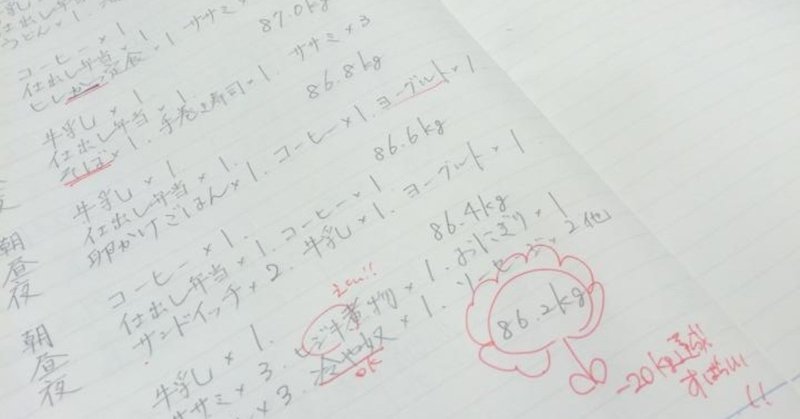 うどん×1.
コーヒー×1
仕出し弁当×1
ヒレかつ定食×1 ササミ
87.0kg
牛乳×1
仕出し弁当×1.
そば×1. 手巻き寿司×1. ササミ×3
86.8kg
牛乳×1
仕出し弁当×1.
卵かけごはん×1. コーヒー×1. ヨーグルト×1
86.6kg
朝 コーヒー×1.
昼 仕出し弁当×1. コーヒー×1
夜 サンドイッチ×2. 牛乳×1. ヨーグルト×1
86.4kg
朝 牛乳×1.
昼 ササミ×3. ヒジキ煮物×1. おにぎり×1
夜 ×3. 冷や奴×1. ソーセージ×2 他
えらい!!
OK
86.2kg
-20kg達成!
すばらしい
!!